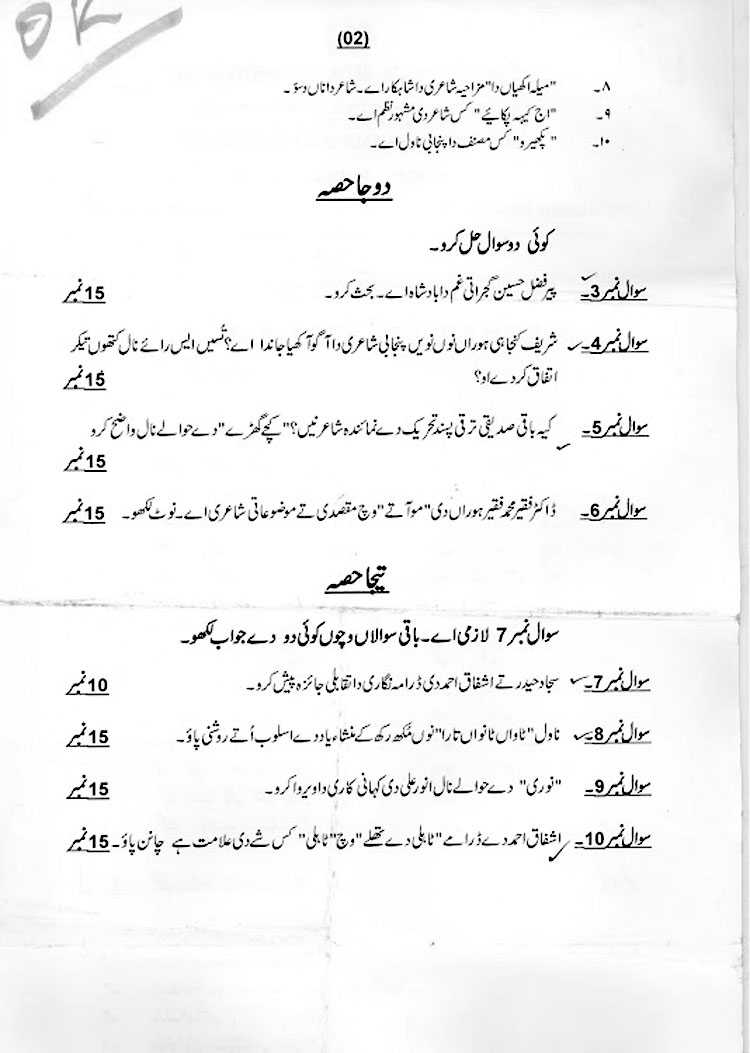 OK
(02)
۸۔ "میلہ اکھیاں دا" مزاحیہ شاعری دا شاہکار اے۔ شاعر دا ناں دسو۔
۹۔ "اج کیہہ پکائیے" کس شاعر دی مشہور نظم اے۔
۱۰۔ "پکھیرو" کس مصنف دا پنجابی ناول اے۔
دوجا حصہ
کوئی دو سوال حل کرو۔
سوال نمبر 3۔ پیر فضل حسین گجراتی غم دا بادشاہ اے۔ بحث کرو۔ 15 نمبر
سوال نمبر 4۔ شریف کنجاہی ہوراں نوں نویں پنجابی شاعری دا آگو آکھیا جاندا اے؟ تُسیں ایس رائے نال کتھوں تیکر
اتفاق کردے او؟ 15 نمبر
سوال نمبر 5۔ کیہ باقی صدیقی ترقی پسند تحریک دے نمائندہ شاعر نیں؟ "کچے گھڑے" دے حوالے نال واضح کرو
15 نمبر
سوال نمبر 6۔ ڈاکٹر فقیر محمد فقیر ہوراں دی "موآتے" وچ مقصدی تے موضوعاتی شاعری اے۔ نوٹ لکھو۔ 15 نمبر
تیجا حصہ
سوال نمبر 7 لازمی اے۔ باقی سوالاں وچوں کوئی دو دے جواب لکھو۔
سوال نمبر 7۔ سجاد حیدر تے اشفاق احمد دی ڈرامہ نگاری دا تقابلی جائزہ پیش کرو۔ 10 نمبر
سوال نمبر 8۔ ناول "ٹاواں ٹانواں تارا" نوں مُکھ رکھ کے منشاء یاد دے اسلوب اُتے روشنی پاؤ۔ 15 نمبر
سوال نمبر 9۔ "نوری" دے حوالے نال انور علی دی کہانی کاری دا ویروا کرو۔ 15 نمبر
سوال نمبر 10۔ اشفاق احمد دے ڈرامے "ٹاہلی دے تھلے" وچ "ٹاہلی" کس شے دی علامت ہے چانن پاؤ۔ 15 نمبر